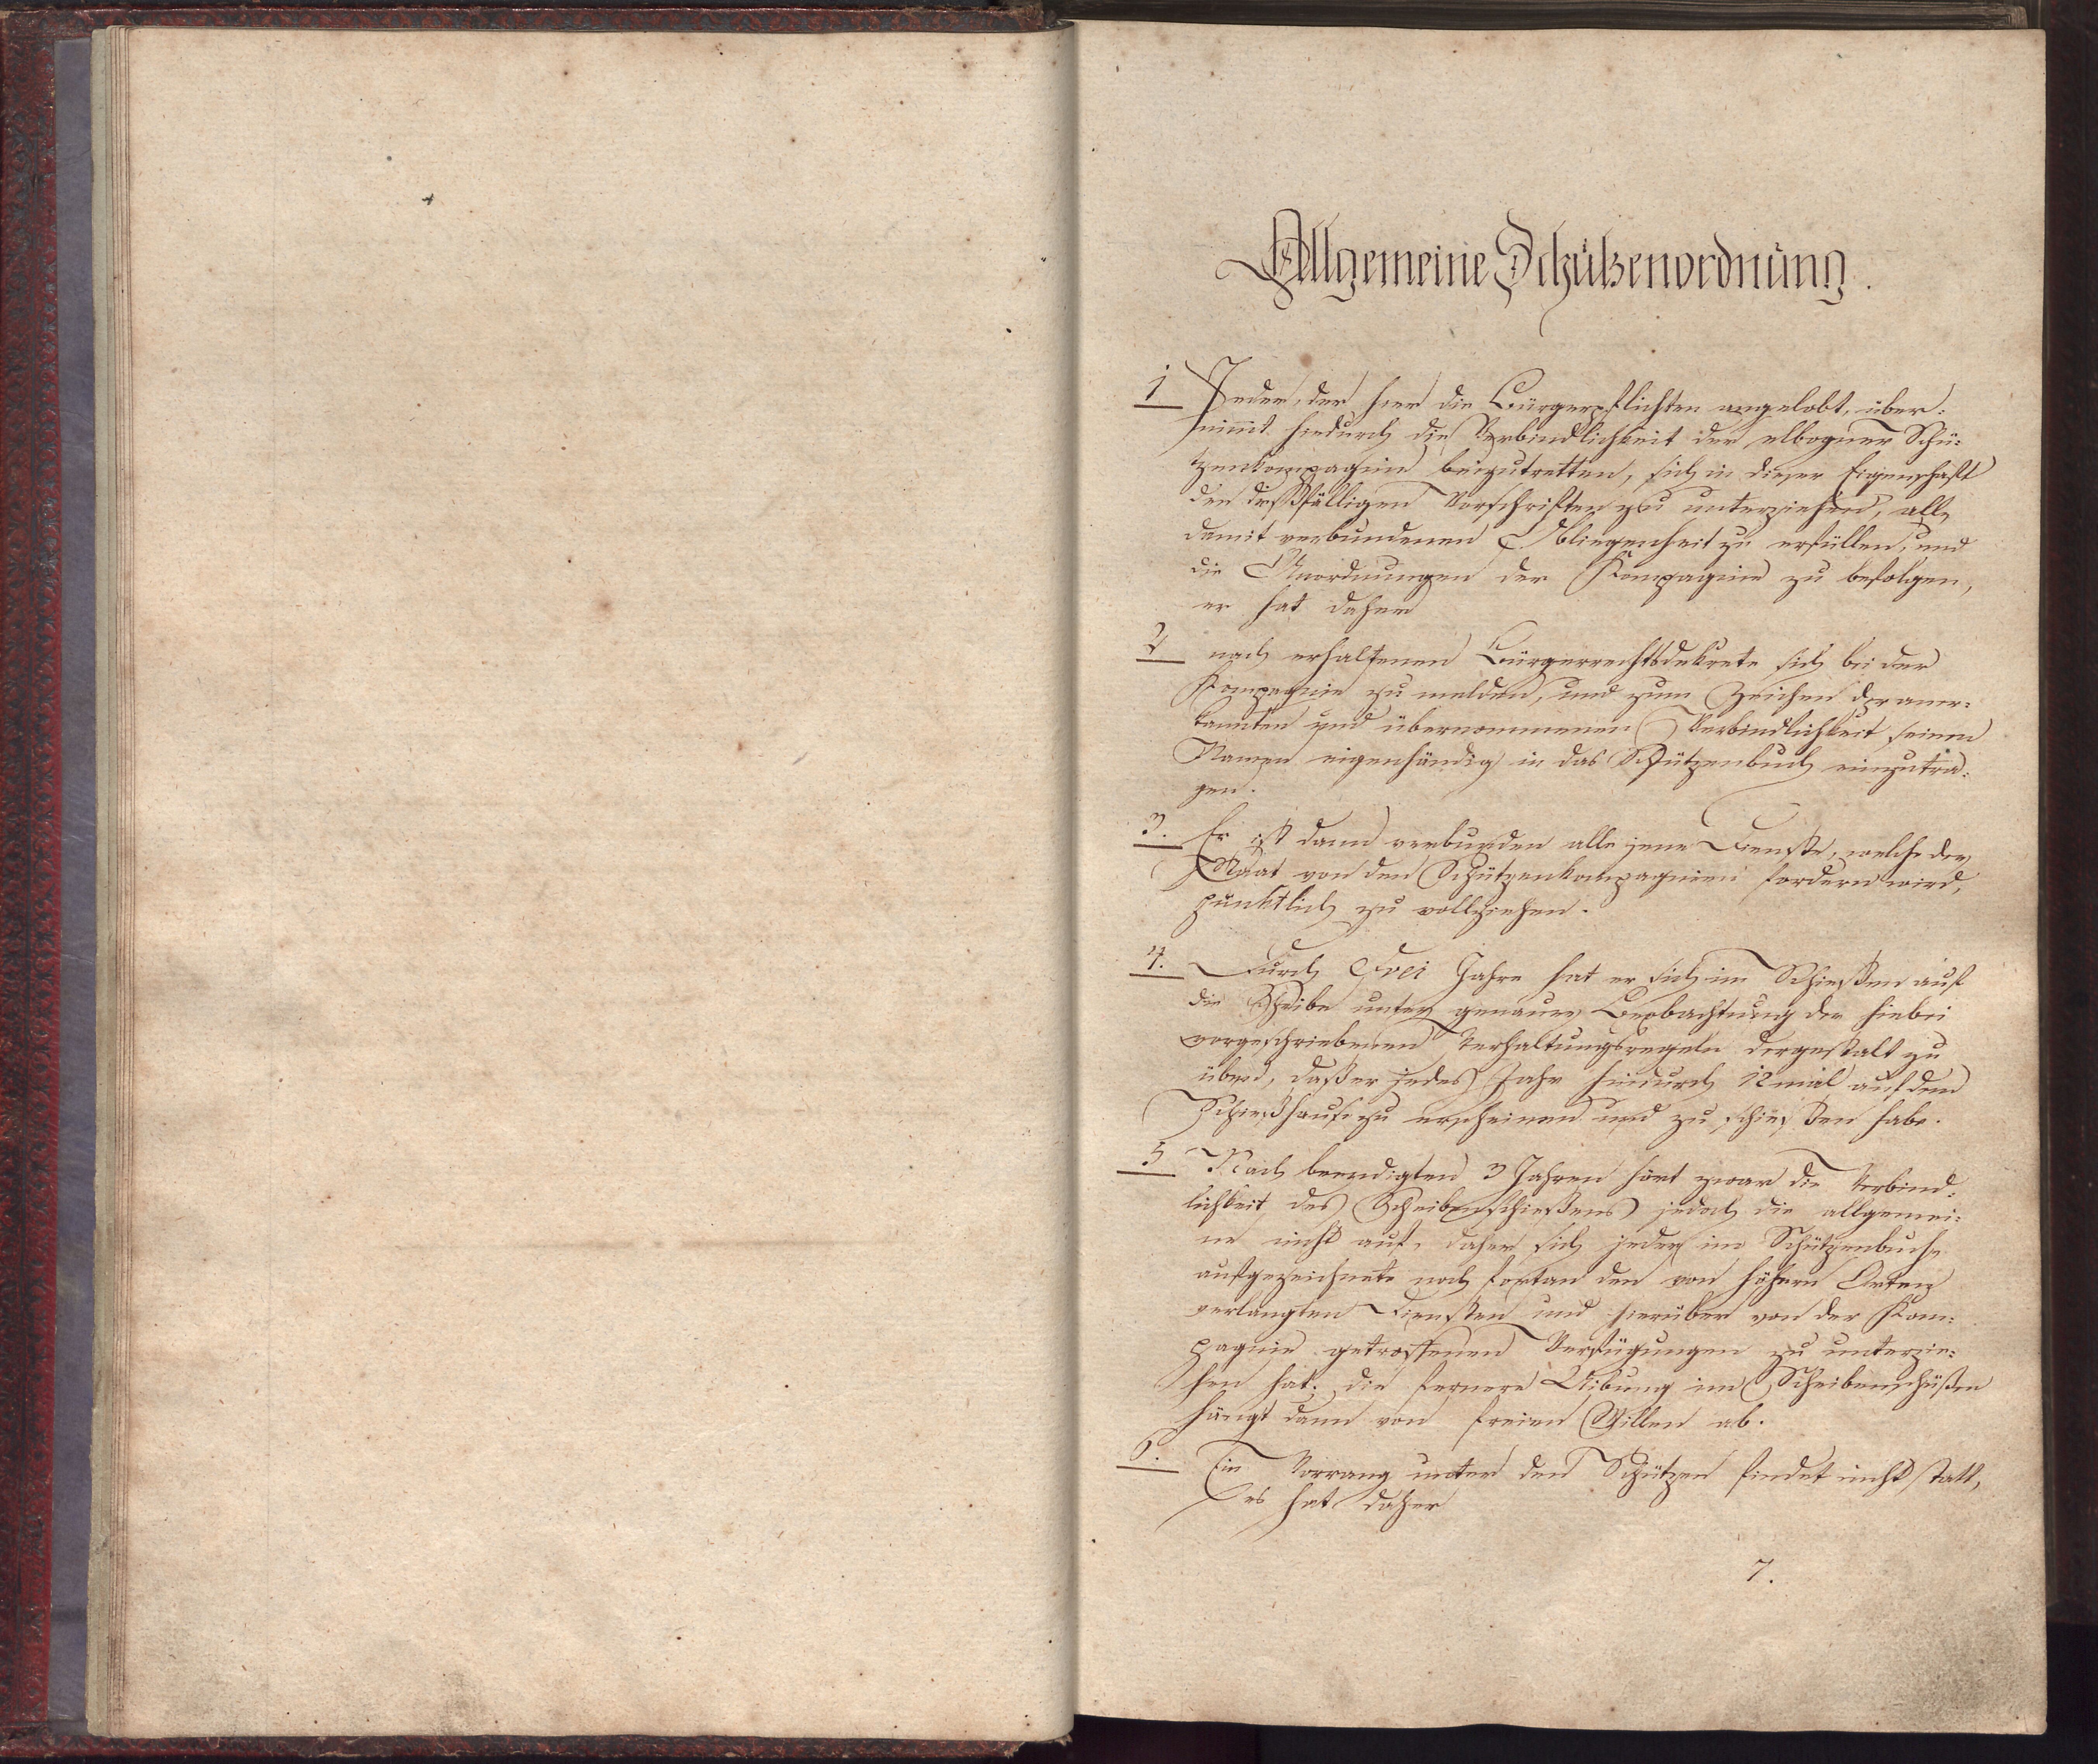 Allgemeine Schützenordnung.
1 Jeder, der hier die Bürgerpflichten angelobt, über:
nimmt hiedurch die Verbindlichkeit der elbogner Schü:
tzenkompagnie beizutretten, sich in dieser Eigenschaft
den dießfälligen Vorschriften zu unterziehen, alle
damit verbundenen Obliegenheit zu erfüllen, und
die Anordnungen der Kompagnie zu befolgen,
er hat daher
2 nach erhaltenen Bürgerrechtsdekrete sich bei der
Kompagnie zu melden, und zum Zeichen der aner:
kannten und übernommenen Verbindlichkeit seinen
Namen eigenhändig in das Schützenbuch einzutra:
gen.
3. Er ist dann verbunden alle jene Dienste, welche der
Staat von den Schützenkompagnien fordern wird,
pünktlich zu vollziehen.
4. Durch Drei Jahre hat er sich im Schießen auf
die Scheibe unter genauer Beobachtung der hiebei
vorgeschriebenen Verhaltungsregeln dergestalt zu
üben, daß er jedes Jahr hindurch 12 mal auf dem
Schießhause zu erscheinen und zu schießen habe.
5 Nach beendigten 3 Jahren hört zwar die Verbind:
lichkeit des Scheibenschießens jedoch die allgemei:
ne nicht auf, daher sich jeder im Schützenbuche
aufgezeichnete noch fortan den von höhern Orten
verlangten Diensten und hierüber von der Kom:
pagnie getroffenen Verfügungen zu unterzie:
hen hat; die fernere Uibung im Scheibenschüßen
hängt dann von freien Willen ab.
6. Ein Vorrang unter den Schützen findet nicht statt,
es hat daher
7.